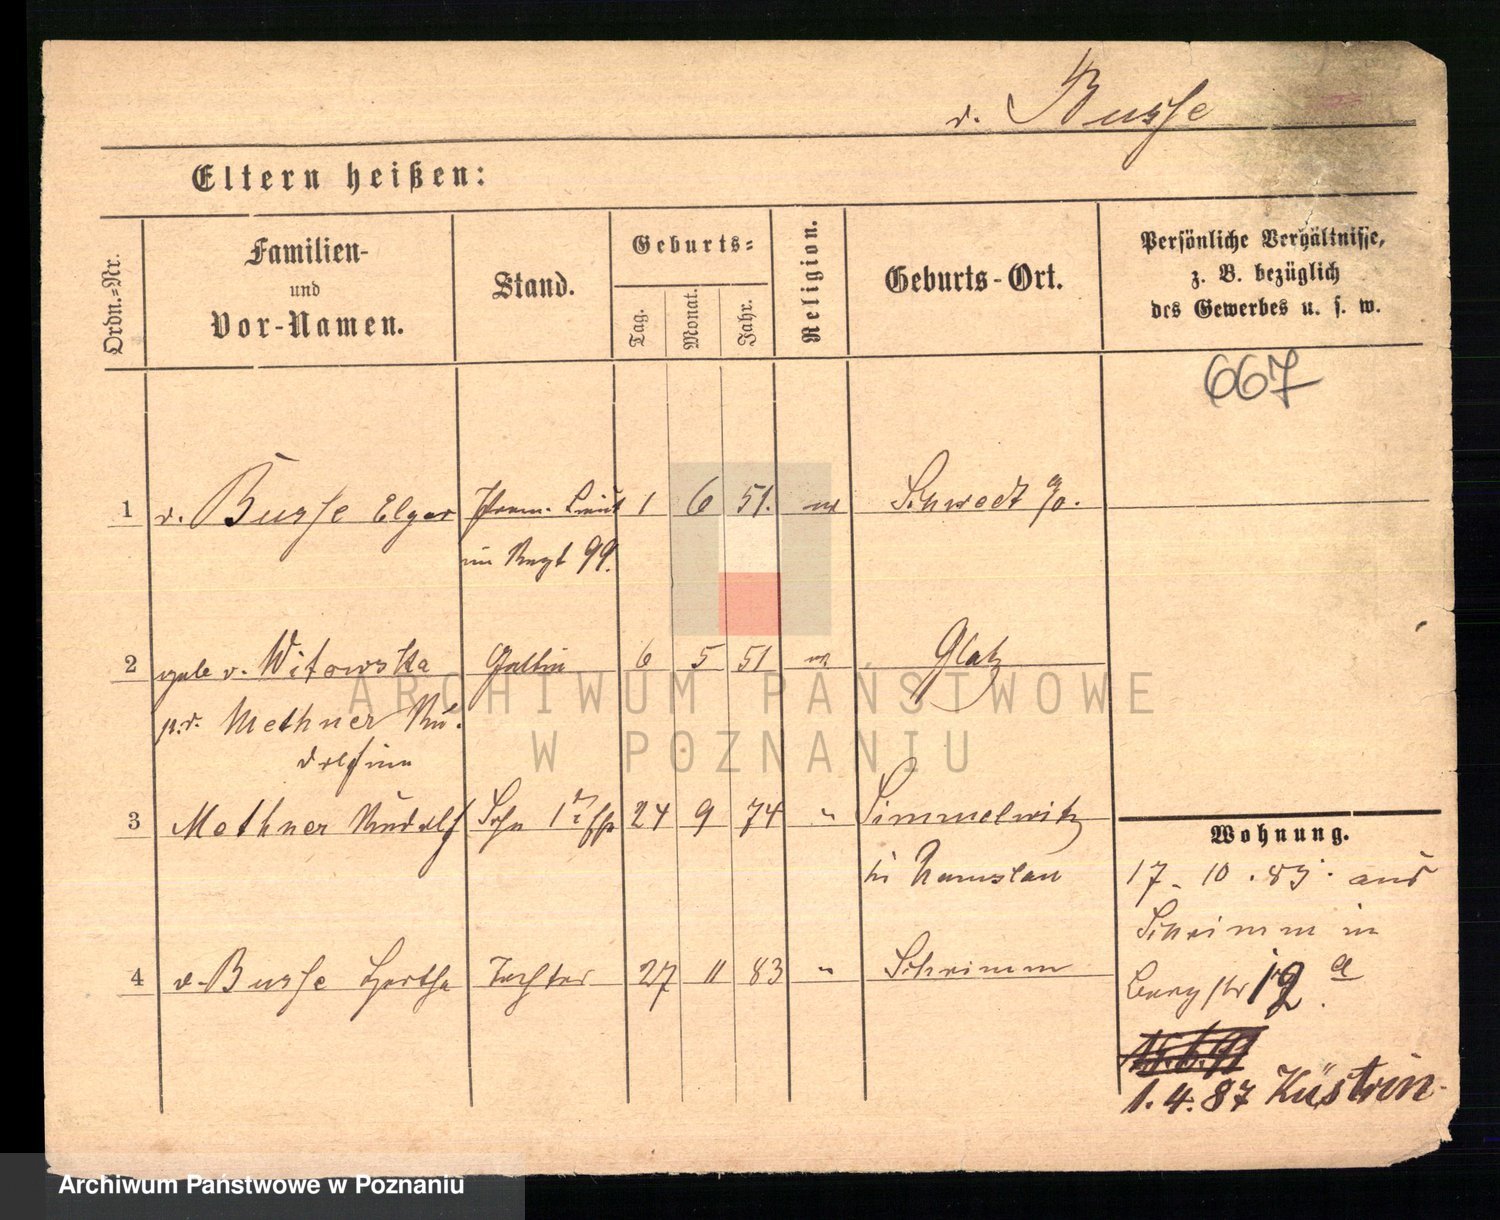 v. Busse
Eltern heißen:
Ordn.=Nr.
Familien-
und
Vor-Namen.
Stand.
Geburts=
Tag.
Monat.
Jahr.
Religion.
Geburts-Ort.
Persönliche Verhältnisse,
z. B. bezüglich
des Gewerbes u. s. w.
667
1 v. Busse Elgar Prem. Lieut 1 6 51. Schwedt a/o.
im Regt 99.
2 gesc v. Witowska Gattin 6 5 51 Glatz
Methner Ru-
dolfine
3 Methner Rudolf Sohn 1r 24 9 74 " Simmelwitz
bei Namslau
4 v. Busse Hertha Tochter 27 11 83 " Schrimm
Wohnung.
17. 10. 85. aus
Schrimm in
Bergstr 12a
1.4.87 Küstrin
ARCHIWUM PAŃSTWOWE
W POZNANIU
Archiwum Państwowe w Poznaniu